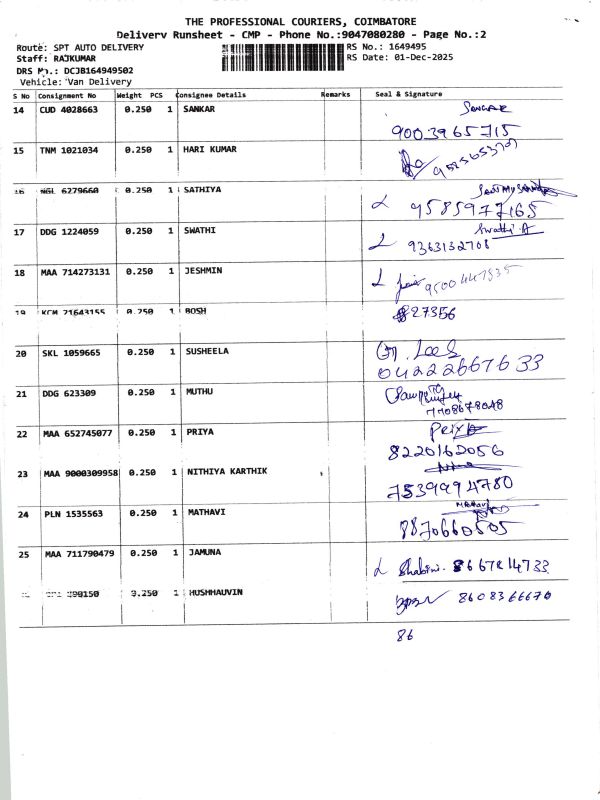 THE PROFESSIONAL COURIERS, COIMBATORE
Delivery Runsheet - CMP - Phone No.:9047080280 - Page No.:2
Route: SPT AUTO DELIVERY RS No.: 1649495
Staff: RAJKUMAR RS Date: 01-Dec-2025
DRS No.: DCJB164949502
Vehicle: Van Delivery
S No Consignment No Weight PCS Consignee Details Remarks Seal & Signature
14 CUD 4028663 0.250 1 SANKAR
9003965715
15 TNM 1021034 0.250 1 HARI KUMAR
16 NGL 6279660 0.250 1 SATHIYA
9585977165
17 DDG 1224059 0.250 1 SWATHI Swathi.A
9363132708
18 MAA 714273131 0.250 1 JESHMIN
19 KCM 71643155 0.250 1 BOSH 827356
20 SKL 1059665 0.250 1 SUSHEELA
04222667633
21 DDG 623309 0.250 1 MUTHU
7708678048
22 MAA 652745077 0.250 1 PRIYA Priya
8220162056
23 MAA 9000309958 0.250 1 NITHIYA KARTHIK
7539994780
24 PLN 1535563 0.250 1 MATHAVI
8870660505
25 MAA 711790479 0.250 1 JAMUNA
0.250 1 HUSHHAUVIN 8608366670
86